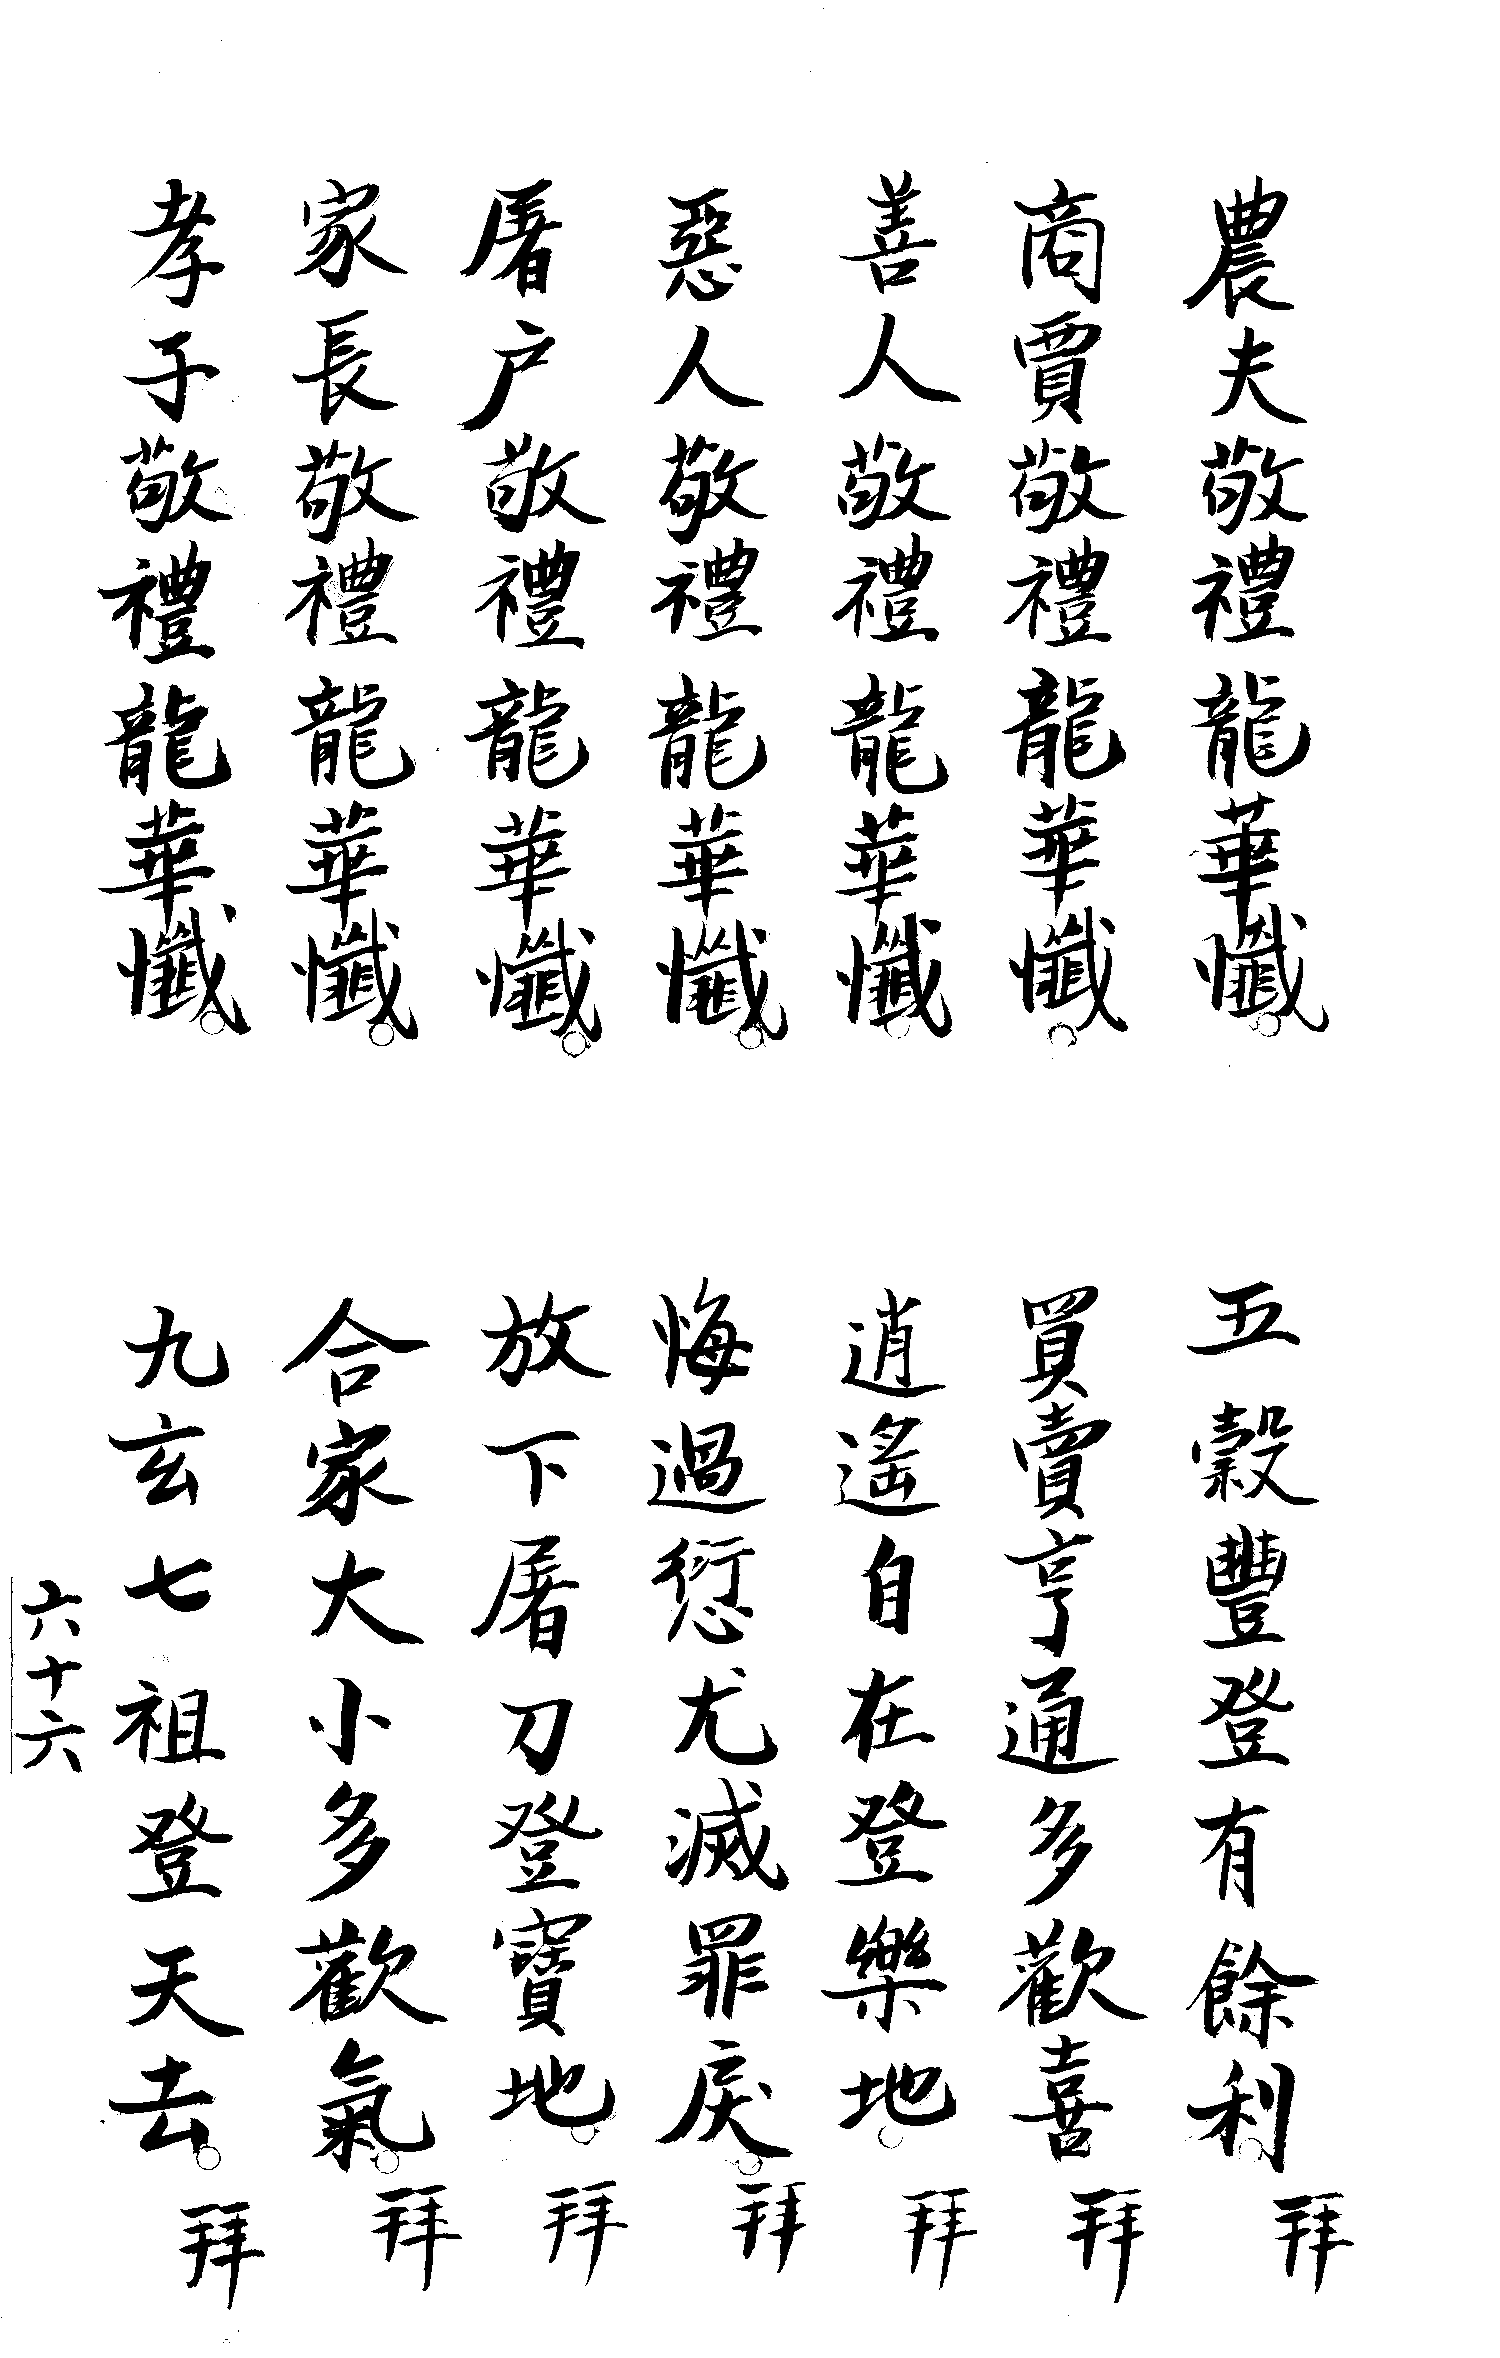 農夫敬禮龍華懺○五穀豐登有餘利○拜
商賈敬禮龍華懺○買賣亨通多歡喜 拜
善人敬禮龍華懺○逍遙自在登樂地○拜
惡人敬禮龍華懺○悔過愆尤滅罪戾○拜
屠户敬禮龍華懺○放下屠刀登寶地○拜
家長敬禮龍華懺○合家大小多歡氣○拜
孝子敬禮龍華懺○九玄七祖登天去○拜
六十六